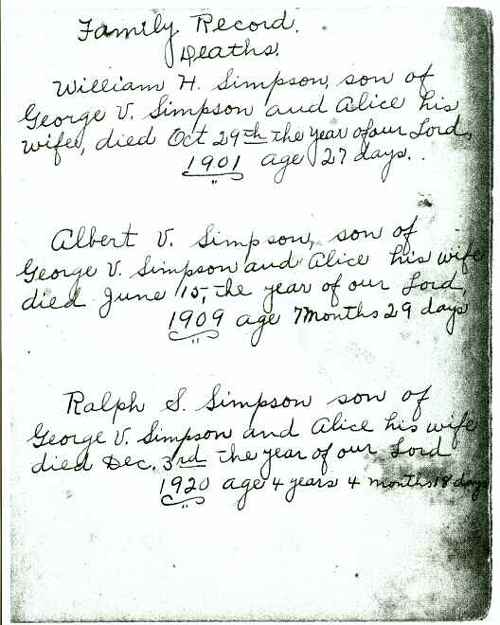 Family Record.
Deaths.
William H. Simpson, son of
George V. Simpson and Alice his
wife, died Oct 29th the year of our Lord,
1901 age 27 days..
Albert V. Simpson, son of
George V. Simpson and Alice his wife
died June 15, the year of our Lord,
1909 age 7 Months 29 days
Ralph S. Simpson son of
George V. Simpson and Alice his wife
died Dec. 3rd the year of our Lord
1920 age 4 years 4 months 18 days